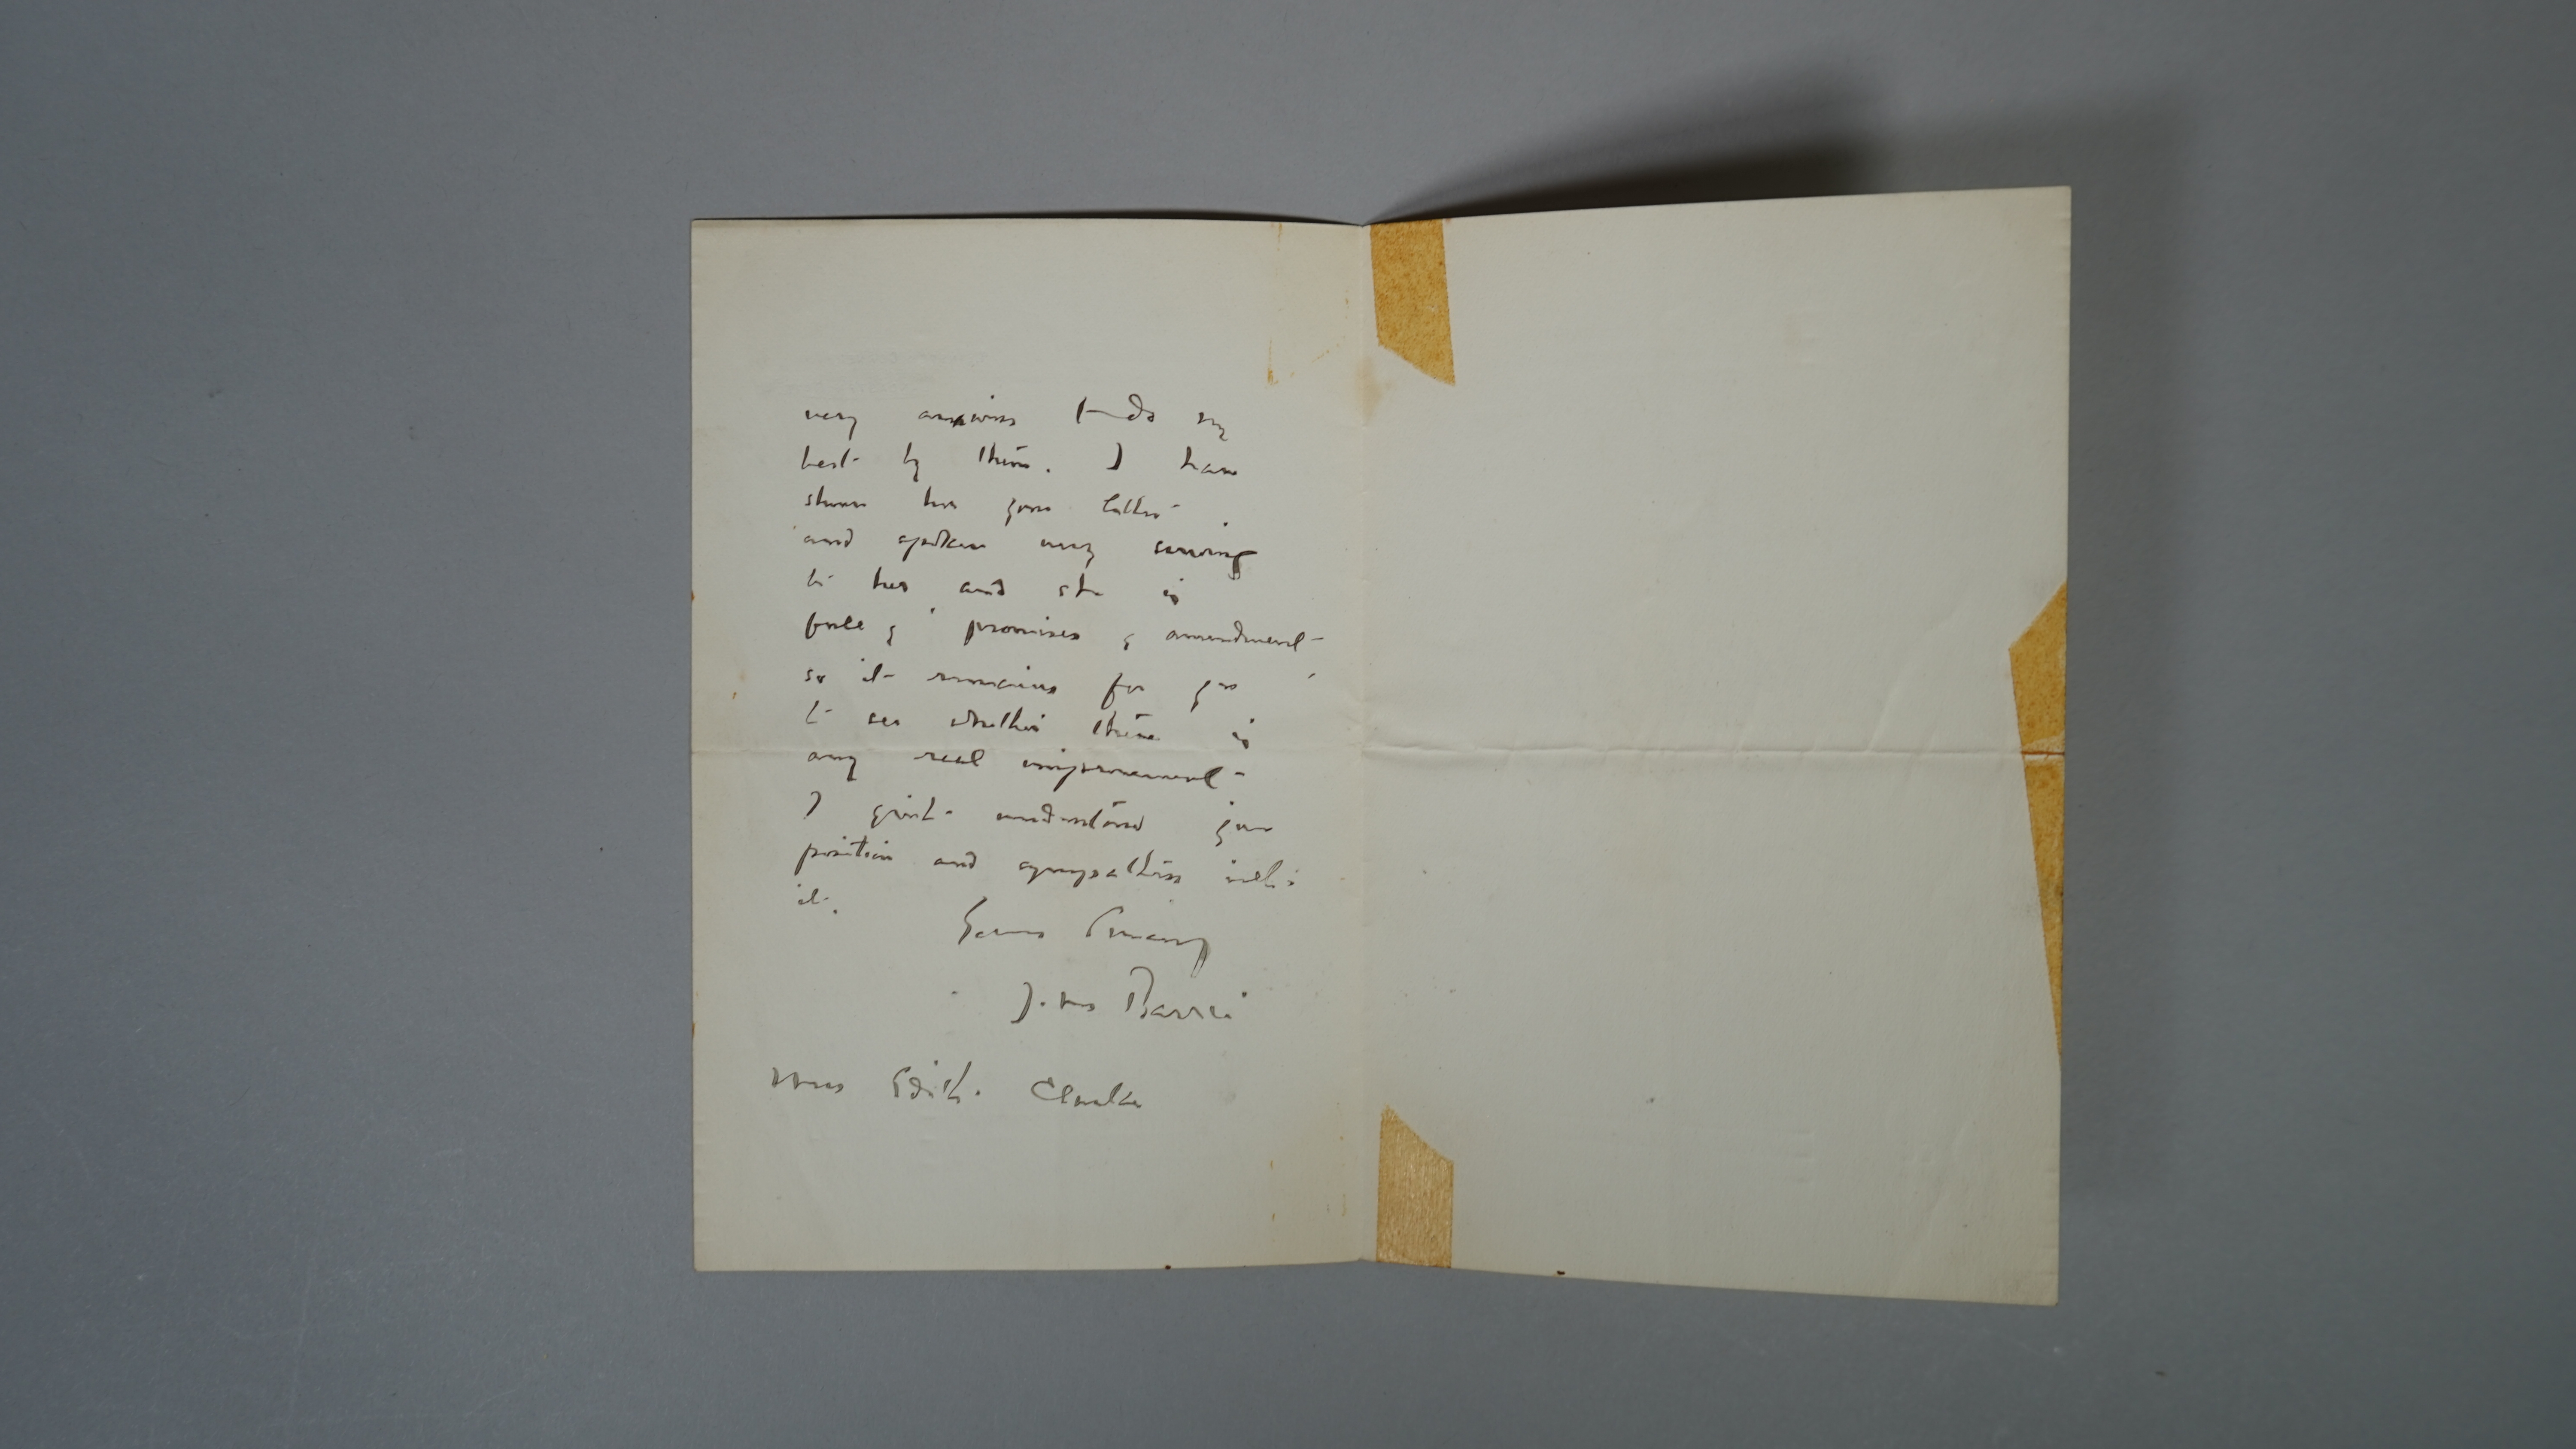 very anxious to do my
best by them. I have
shown her your letter
and spoken very seriously
to her and she is
full of promises of amendment
so it remains for you
to see whether there is
any real improvement
I quite understand your
position and sympathise with
it.
Yours sincerely
J. M. Barrie
Miss Edith Clarke